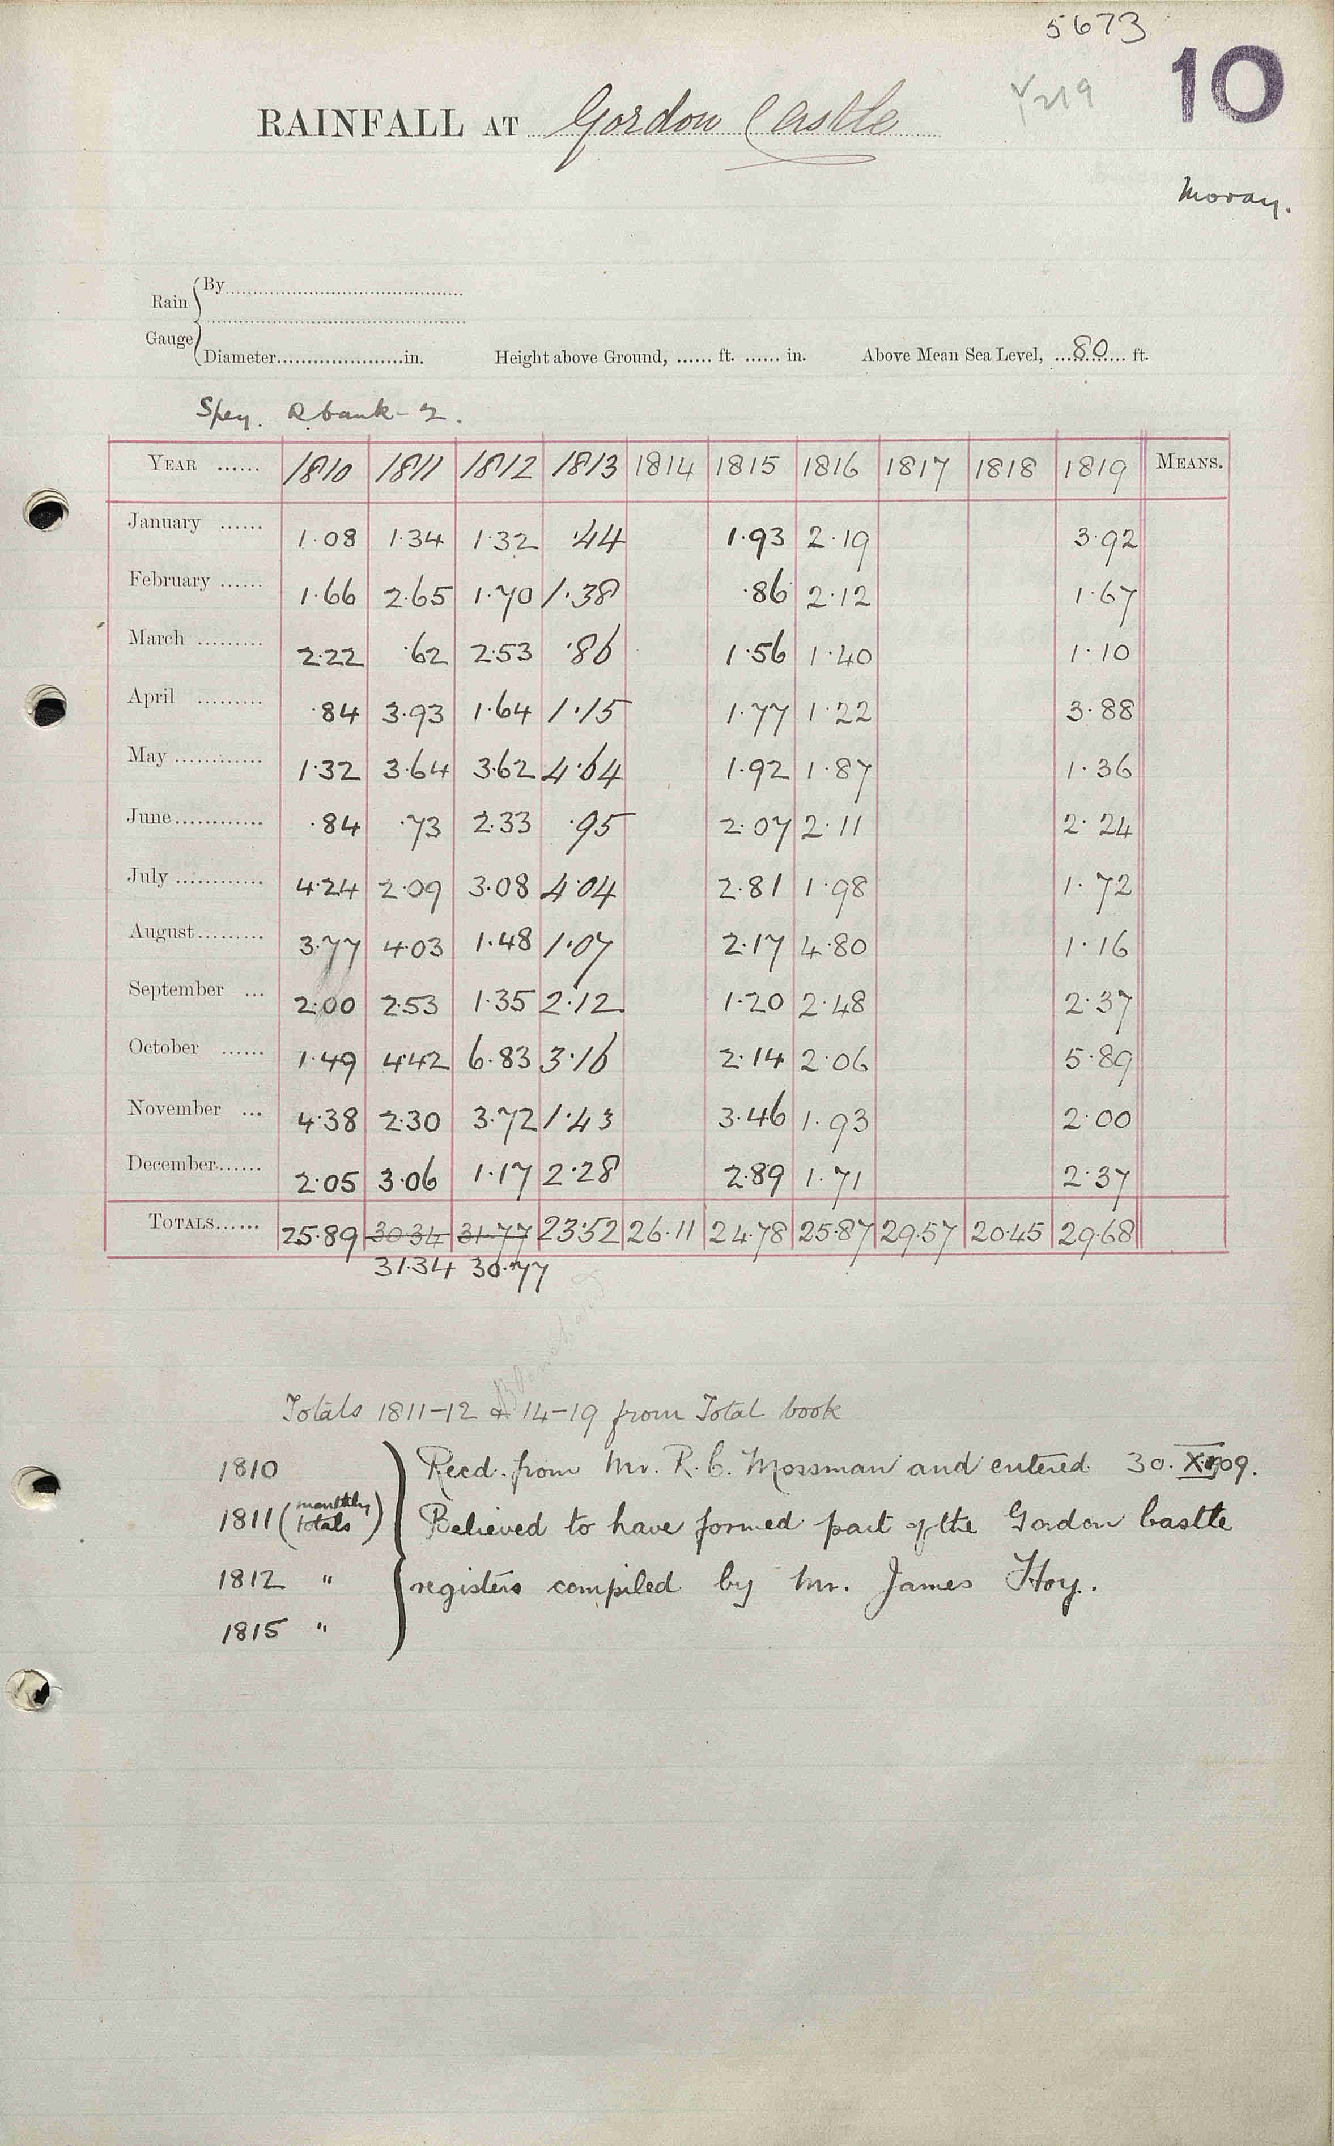 5673
10
RAINFALL AT Gordon Castle
Moray.
Rain Gauge
By
Diameter in. Height above Ground, ...... ft. ...... in. Above Mean Sea Level, 80 ft.
Spey. R bank - 2.
YEAR ...... 1810 1811 1812 1813 1814 1815 1816 1817 1818 1819 MEANS.
January ...... 1.08 1.34 1.32 .44 1.93 2.19 3.92
February ...... 1.66 2.65 1.70 1.38 .86 2.12 1.67
March ......... 2.22 .62 2.53 .86 1.56 1.40 1.10
April ......... .84 3.93 1.64 1.15 1.77 1.22 3.88
May ............ 1.32 3.64 3.62 4.64 1.92 1.87 1.36
June ............ .84 .73 2.33 .95 2.07 2.11 2.24
July ............ 4.24 2.09 3.08 4.04 2.81 1.98 1.72
August ......... 3.77 4.03 1.48 1.07 2.17 4.80 1.16
September ... 2.00 2.53 1.35 2.12 1.20 2.48 2.37
October ...... 1.49 4.42 6.83 3.16 2.14 2.06 5.89
November ... 4.38 2.30 3.72 1.43 3.46 1.93 2.00
December ...... 2.05 3.06 1.17 2.28 2.89 1.71 2.37
TOTALS ...... 25.89 30.34 31.77 23.52 26.11 24.78 25.87 29.57 20.45 29.68
31.34 30.77
Totals 1811-12 & 14-19 from Total book
1810 Recd. from Mr. R. C. Mossman and entered 30.
1811 (monthly totals) Believed to have formed part of the Gordon Castle
1812 " registers compiled by Mr. James Hoy.
1815 "